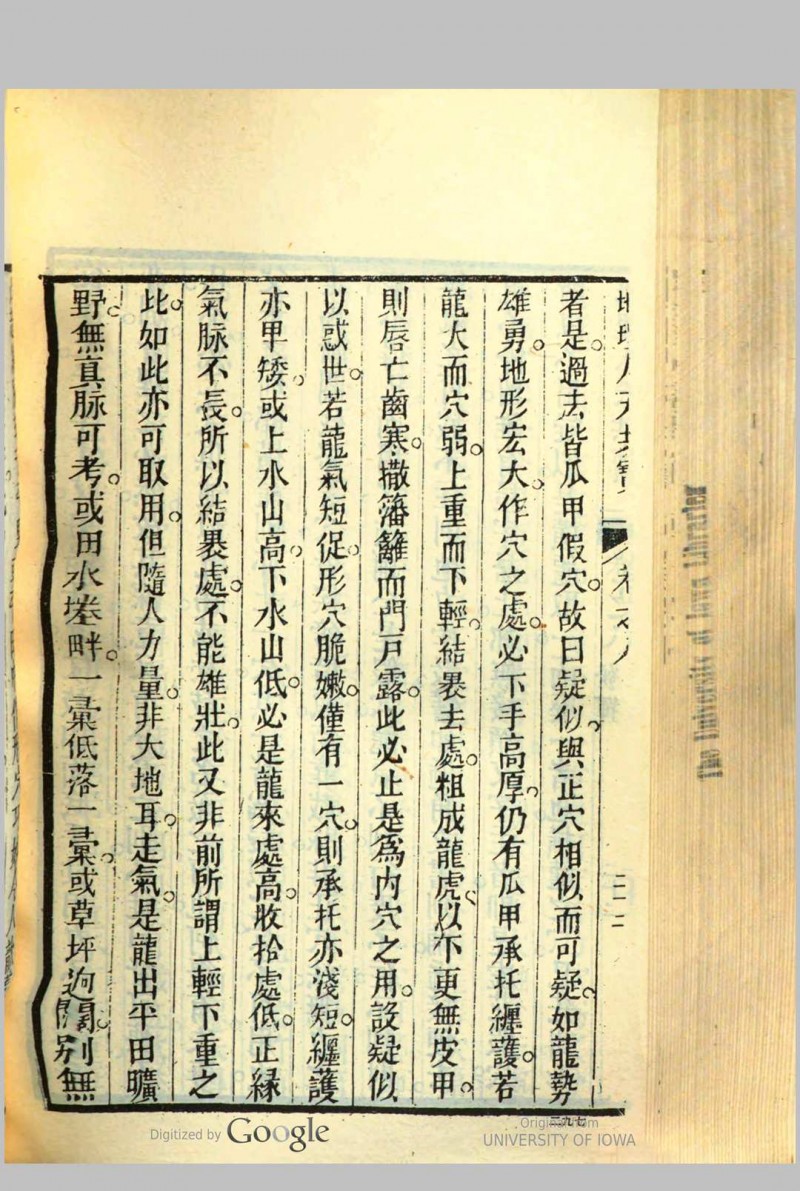 者是過去皆瓜甲假穴故曰疑似與正穴相似而可疑如龍勢
雄勇地形宏大作穴之處必下手高厚仍有瓜甲承托纏護若
龍大而穴弱上重而下輕結褁去處粗成龍虎以下更無皮甲
則唇亡齒寒撒籓籬而門戸露此必止是爲内穴之用設疑似
以惑世若龍氣短促形穴脆嫩僅有一穴則承托亦淺短纏護
亦甲矮或上水山高下水山低必是龍來處高收拾處低正縁
氣脉不長所以結褁處不能雄壯此又非前所謂上輕下重之
比如此亦可取用但隨人力量非大地耳走氣是龍出平田曠
野無真脉可考或田水塂畔一彙低落一彙或草坪逈闊别無
Digitized by Google
Original from
UNIVERSITY OF IOWA